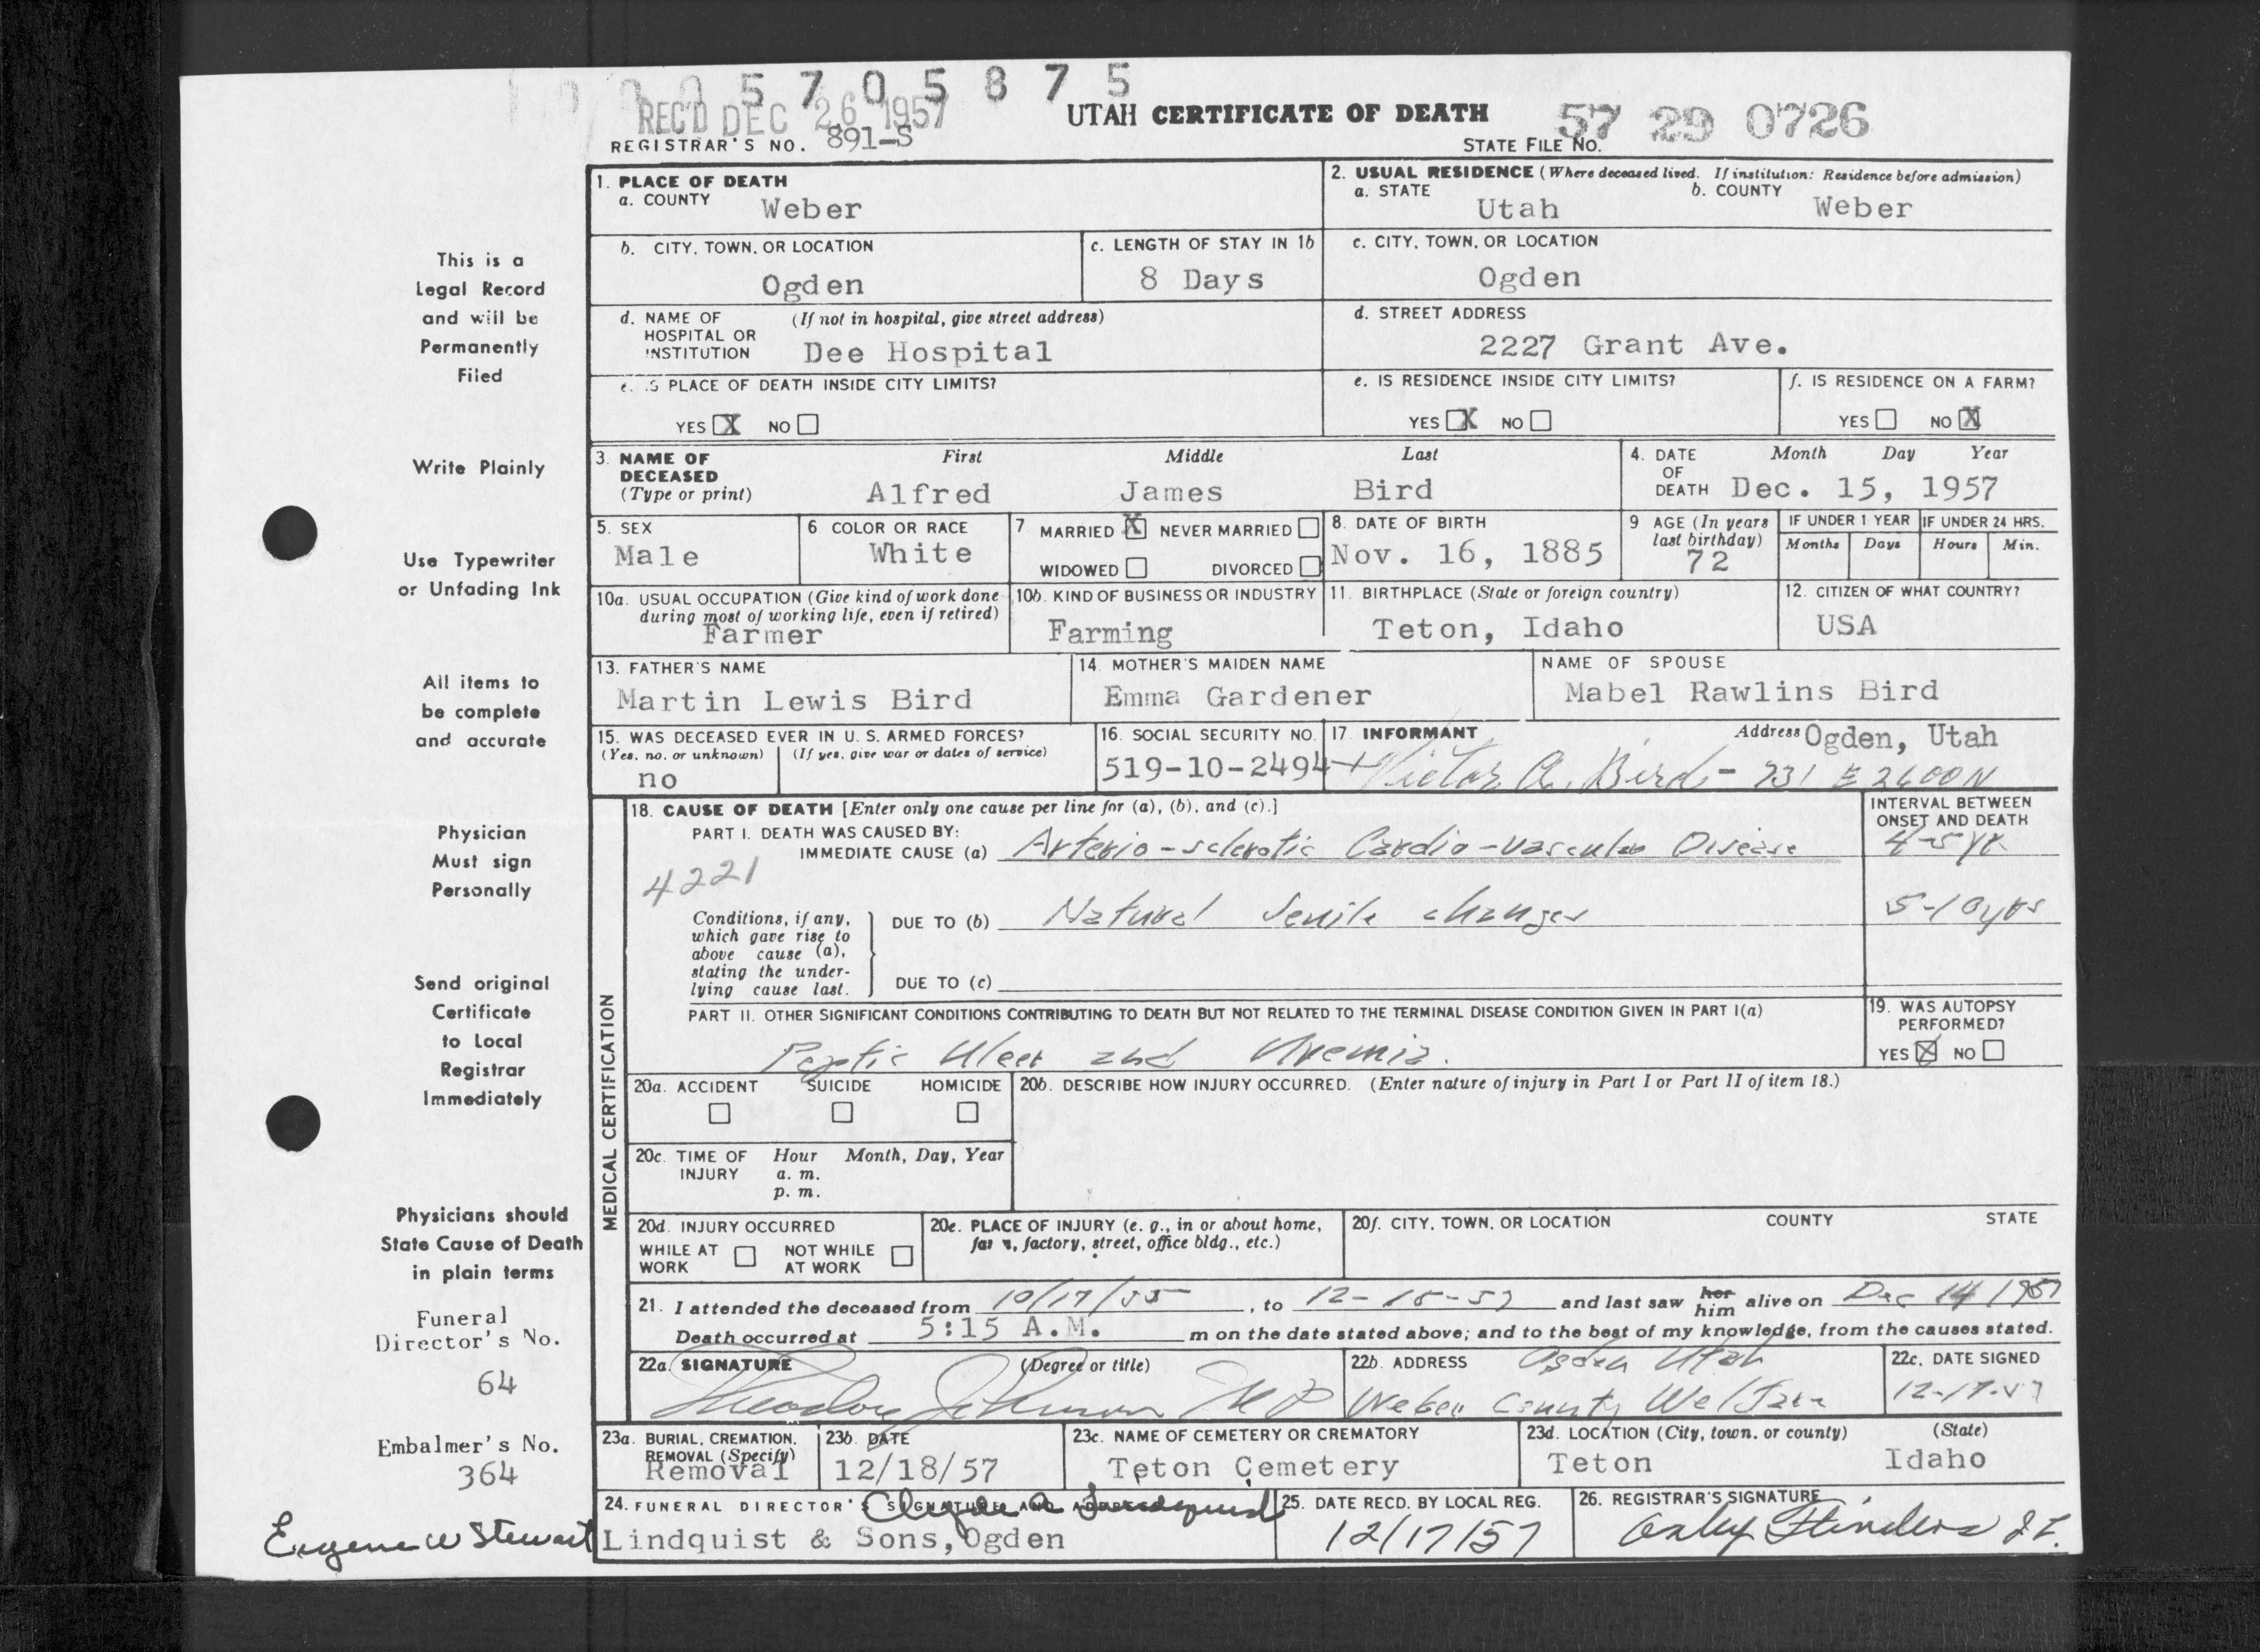 5 7 0 5 8 7 5
REC'D DEC 26 1957
UTAH CERTIFICATE OF DEATH
57 29 0726
REGISTRAR'S NO. 891-S
STATE FILE NO.
1. PLACE OF DEATH
a. COUNTY Weber
2. USUAL RESIDENCE (Where deceased lived. If institution: Residence before admission)
a. STATE Utah
b. COUNTY Weber
b. CITY, TOWN, OR LOCATION
Ogden
c. LENGTH OF STAY IN 1b
8 Days
c. CITY, TOWN, OR LOCATION
Ogden
d. NAME OF HOSPITAL OR INSTITUTION (If not in hospital, give street address)
Dee Hospital
d. STREET ADDRESS
2227 Grant Ave.
e. IS PLACE OF DEATH INSIDE CITY LIMITS?
YES X NO
e. IS RESIDENCE INSIDE CITY LIMITS?
YES X NO
f. IS RESIDENCE ON A FARM?
YES NO X
3. NAME OF DECEASED (Type or print)
First Middle Last
Alfred James Bird
4. DATE OF DEATH
Month Day Year
Dec. 15, 1957
5. SEX
Male
6 COLOR OR RACE
White
7 MARRIED X NEVER MARRIED
WIDOWED DIVORCED
8. DATE OF BIRTH
Nov. 16, 1885
9 AGE (In years last birthday)
72
IF UNDER 1 YEAR
Months Days
IF UNDER 24 HRS.
Hours Min.
10a. USUAL OCCUPATION (Give kind of work done during most of working life, even if retired)
Farmer
10b. KIND OF BUSINESS OR INDUSTRY
Farming
11. BIRTHPLACE (State or foreign country)
Teton, Idaho
12. CITIZEN OF WHAT COUNTRY?
USA
13. FATHER'S NAME
Martin Lewis Bird
14. MOTHER'S MAIDEN NAME
Emma Gardener
NAME OF SPOUSE
Mabel Rawlins Bird
15. WAS DECEASED EVER IN U. S. ARMED FORCES?
(Yes, no, or unknown) (If yes, give war or dates of service)
no
16. SOCIAL SECURITY NO.
519-10-2494
17. INFORMANT
Address Ogden, Utah
Victor A. Bird - 731 E 2600 N
MEDICAL CERTIFICATION
18. CAUSE OF DEATH [Enter only one cause per line for (a), (b), and (c).]
INTERVAL BETWEEN ONSET AND DEATH
PART I. DEATH WAS CAUSED BY:
IMMEDIATE CAUSE (a) Arterio-sclerotic Cardio-vascular Disease
4-5 yr
4221
Conditions, if any, which gave rise to above cause (a), stating the underlying cause last.
DUE TO (b) Natural Senile changes
5-10 yrs
DUE TO (c)
PART II. OTHER SIGNIFICANT CONDITIONS CONTRIBUTING TO DEATH BUT NOT RELATED TO THE TERMINAL DISEASE CONDITION GIVEN IN PART I(a)
Peptic Ulcer and
19. WAS AUTOPSY PERFORMED?
YES X NO
20a. ACCIDENT SUICIDE HOMICIDE
20b. DESCRIBE HOW INJURY OCCURRED. (Enter nature of injury in Part I or Part II of item 18.)
20c. TIME OF INJURY
Hour Month, Day, Year
a. m.
p. m.
20d. INJURY OCCURRED
WHILE AT WORK NOT WHILE AT WORK
20e. PLACE OF INJURY (e. g., in or about home, farm, factory, street, office bldg., etc.)
20f. CITY, TOWN, OR LOCATION COUNTY STATE
21. I attended the deceased from 10/17/55, to 12-15-57 and last saw her him alive on Dec 14 1957
Death occurred at 5:15 A.M. m on the date stated above; and to the best of my knowledge, from the causes stated.
22a. SIGNATURE (Degree or title)
Theodore Johnson MD
22b. ADDRESS Ogden Utah
Weber County Welfare
22c. DATE SIGNED
12-17-57
23a. BURIAL, CREMATION, REMOVAL (Specify)
Removal
23b. DATE
12/18/57
23c. NAME OF CEMETERY OR CREMATORY
Teton Cemetery
23d. LOCATION (City, town, or county) (State)
Teton Idaho
24. FUNERAL DIRECTOR'S SIGNATURE AND ADDRESS
Clyde A Lindquist
Lindquist & Sons, Ogden
25. DATE RECD. BY LOCAL REG.
12/17/57
26. REGISTRAR'S SIGNATURE
This is a
Legal Record
and will be
Permanently
Filed
Write Plainly
Use Typewriter
or Unfading Ink
All items to
be complete
and accurate
Physician
Must sign
Personally
Send original
Certificate
to Local
Registrar
Immediately
Physicians should
State Cause of Death
in plain terms
Funeral
Director's No.
64
Embalmer's No.
364
Eugene W Stewart